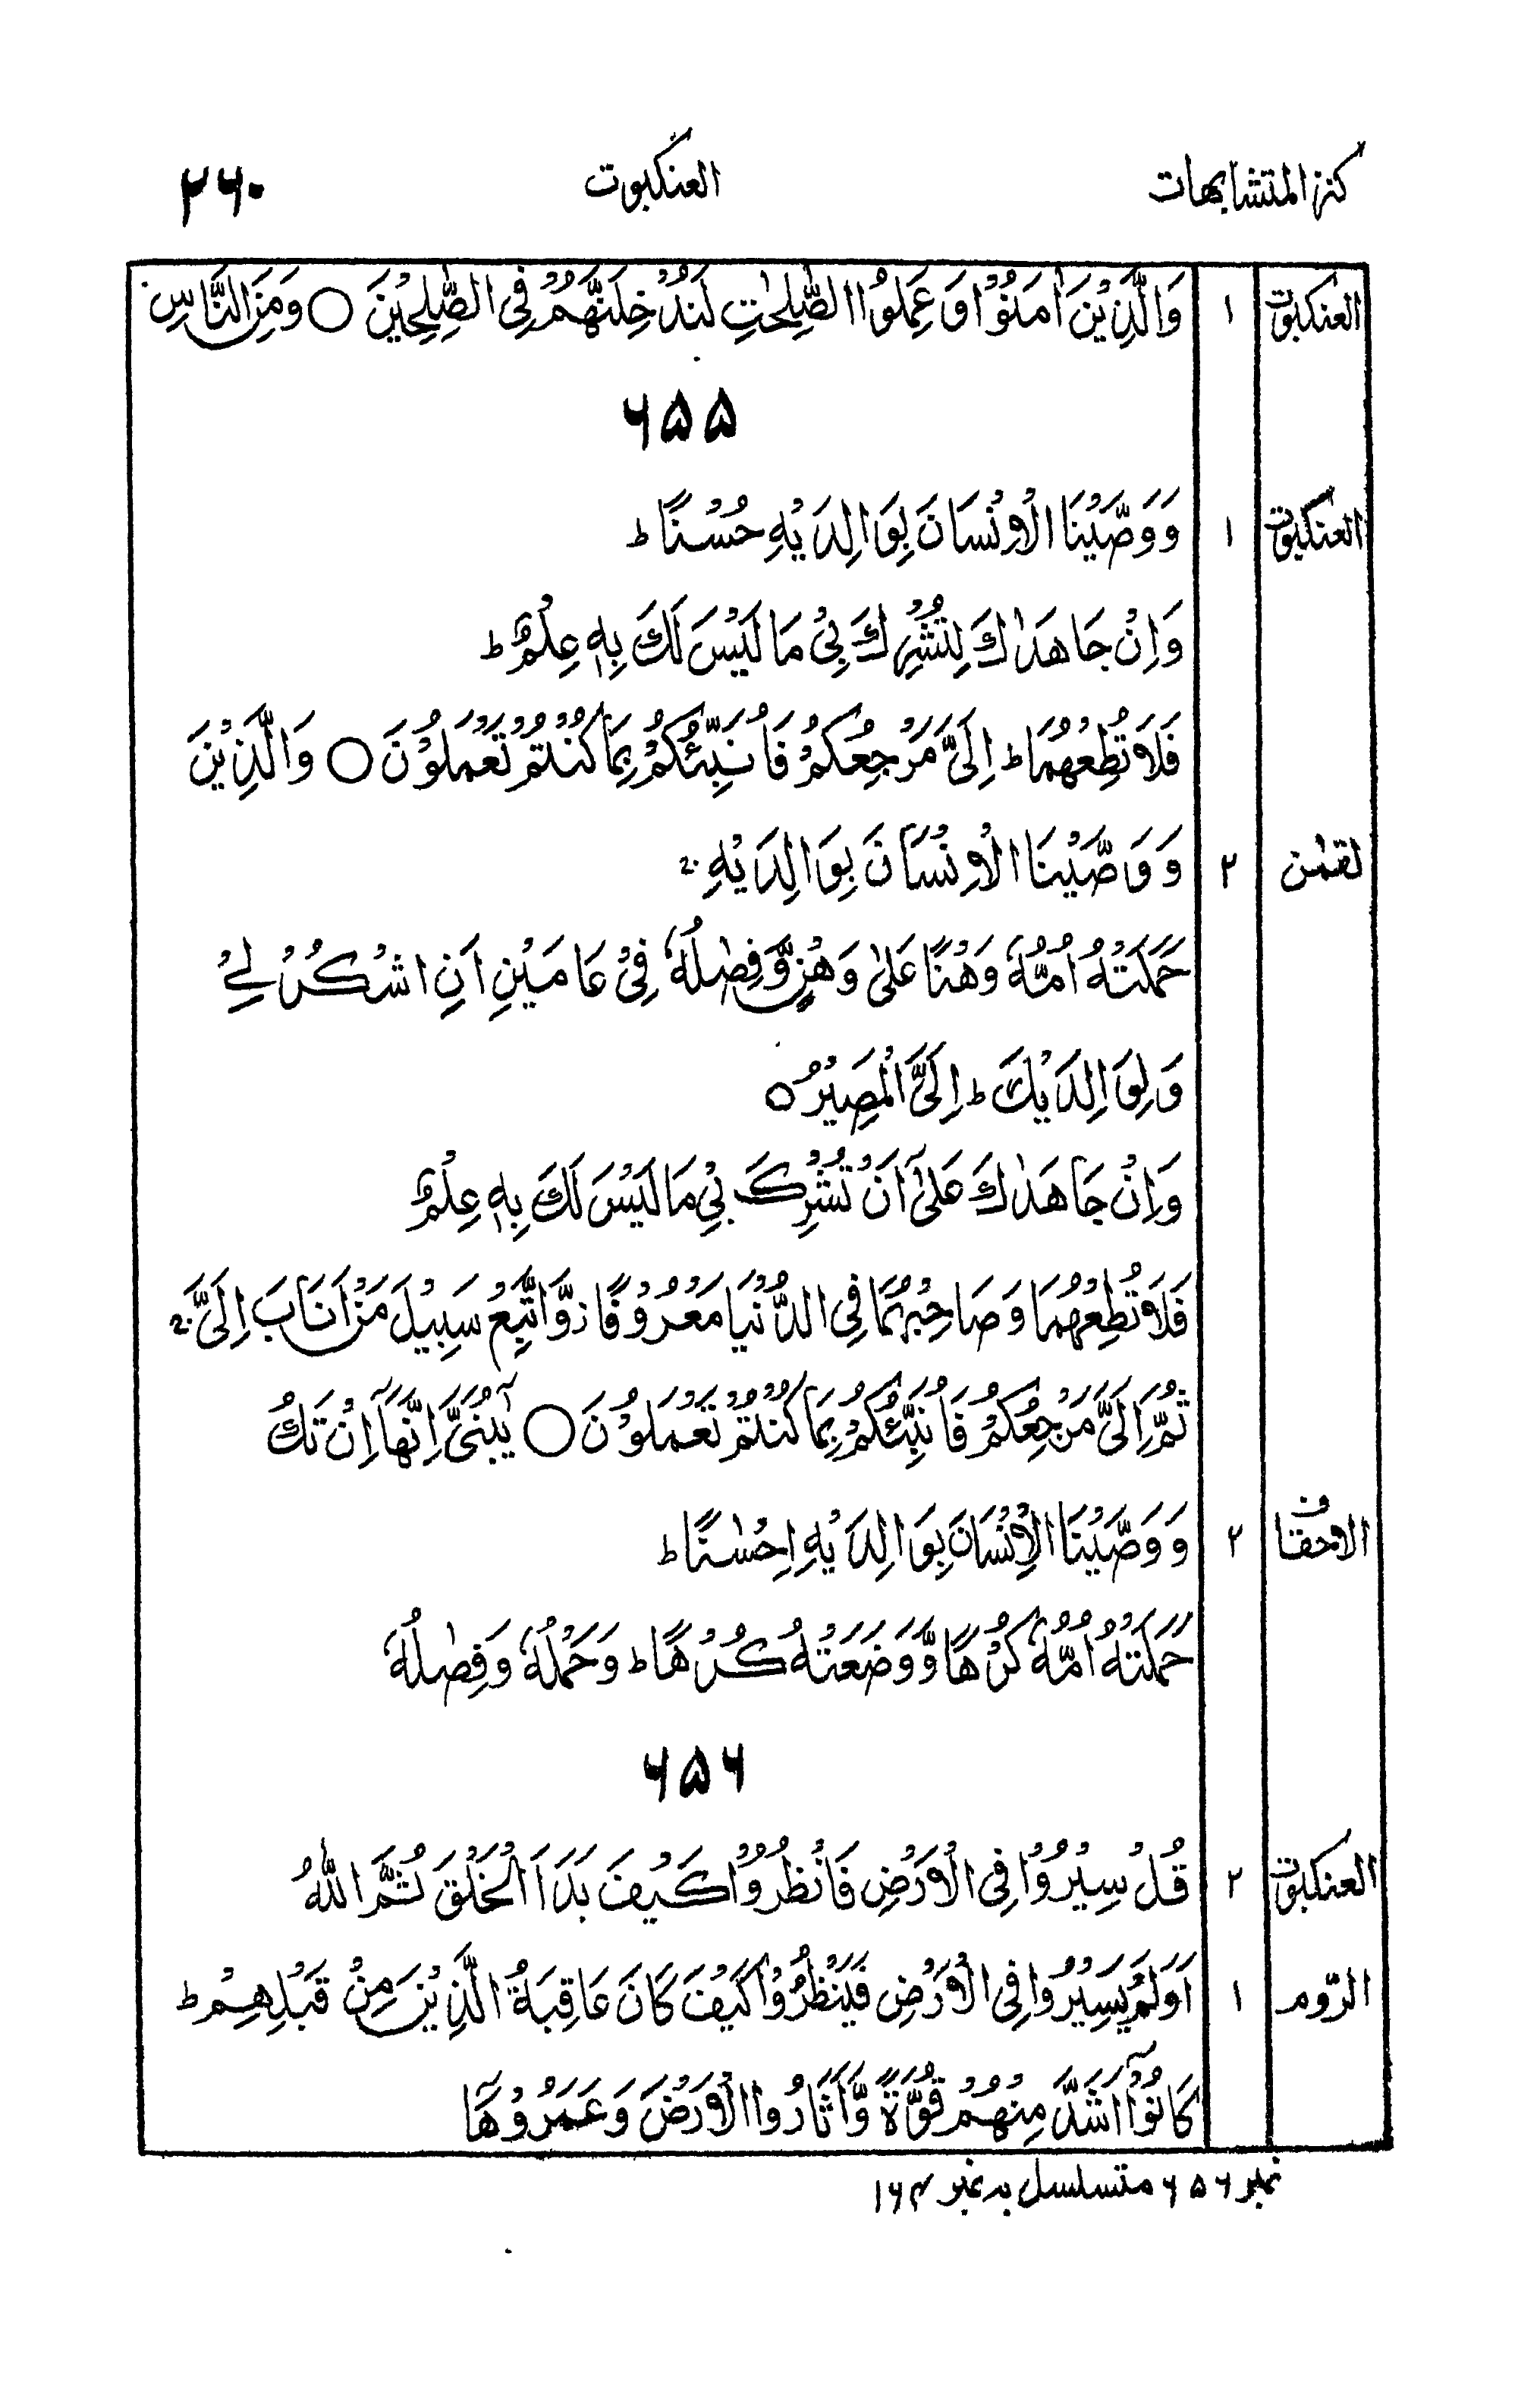 كنز المتشابهات العنكبوت ۲۶۰
العنكبوت ۱ وَالَّذِيْنَ اٰمَنُوْا وَ عَمِلُوا الصّٰلِحٰتِ لَنُدْخِلَنَّهُمْ فِى الصّٰلِحِيْنَ ○ وَمِنَ النَّاسِ
۶۵۵
العنكبوت ۱ وَوَصَّيْنَا الْاِنْسَانَ بِوَالِدَيْهِ حُسْنًا ط
وَاِنْ جَاهَدٰكَ لِتُشْرِكَ بِىْ مَا لَيْسَ لَكَ بِهٖ عِلْمٌ ط
فَلَا تُطِعْهُمَا ط اِلَىَّ مَرْجِعُكُمْ فَاُنَبِّئُكُمْ بِمَا كُنْتُمْ تَعْمَلُوْنَ ○ وَالَّذِيْنَ
لقمٰن ۲ وَوَصَّيْنَا الْاِنْسَانَ بِوَالِدَيْهِ ۚ
حَمَلَتْهُ اُمُّهٗ وَهْنًا عَلٰى وَهْنٍ وَّفِصٰلُهٗ فِىْ عَامَيْنِ اَنِ اشْكُرْ لِىْ
وَلِوَالِدَيْكَ ط اِلَىَّ الْمَصِيْرُ ○
وَاِنْ جَاهَدٰكَ عَلٰٓى اَنْ تُشْرِكَ بِىْ مَا لَيْسَ لَكَ بِهٖ عِلْمٌ
فَلَا تُطِعْهُمَا وَصَاحِبْهُمَا فِى الدُّنْيَا مَعْرُوْفًا ز وَّاتَّبِعْ سَبِيْلَ مَنْ اَنَابَ اِلَىَّ ۚ
ثُمَّ اِلَىَّ مَرْجِعُكُمْ فَاُنَبِّئُكُمْ بِمَا كُنْتُمْ تَعْمَلُوْنَ ○ يٰبُنَىَّ اِنَّهَآ اِنْ تَكُ
الاحقاف ۲ وَوَصَّيْنَا الْاِنْسَانَ بِوَالِدَيْهِ اِحْسٰنًا ط
حَمَلَتْهُ اُمُّهٗ كُرْهًا وَّوَضَعَتْهُ كُرْهًا ط وَحَمْلُهٗ وَفِصٰلُهٗ
۶۵۶
العنكبوت ۲ قُلْ سِيْرُوْا فِى الْاَرْضِ فَانْظُرُوْا كَيْفَ بَدَاَ الْخَلْقَ ثُمَّ اللّٰهُ
الرّوم ۱ اَوَلَمْ يَسِيْرُوْا فِى الْاَرْضِ فَيَنْظُرُوْا كَيْفَ كَانَ عَاقِبَةُ الَّذِيْنَ مِنْ قَبْلِهِمْ ط
كَانُوْٓا اَشَدَّ مِنْهُمْ قُوَّةً وَّاَثَارُوا الْاَرْضَ وَعَمَرُوْهَآ
نمبر ۶۵۶ متسلسل به نمبر ۱۶۴